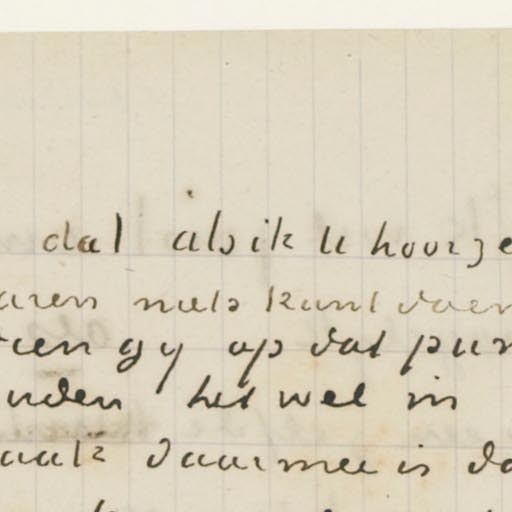 dat als ik U hoor ze
aren niets kunt doen
zien gy op dat pun
uden het wel in
aak daarmee is da